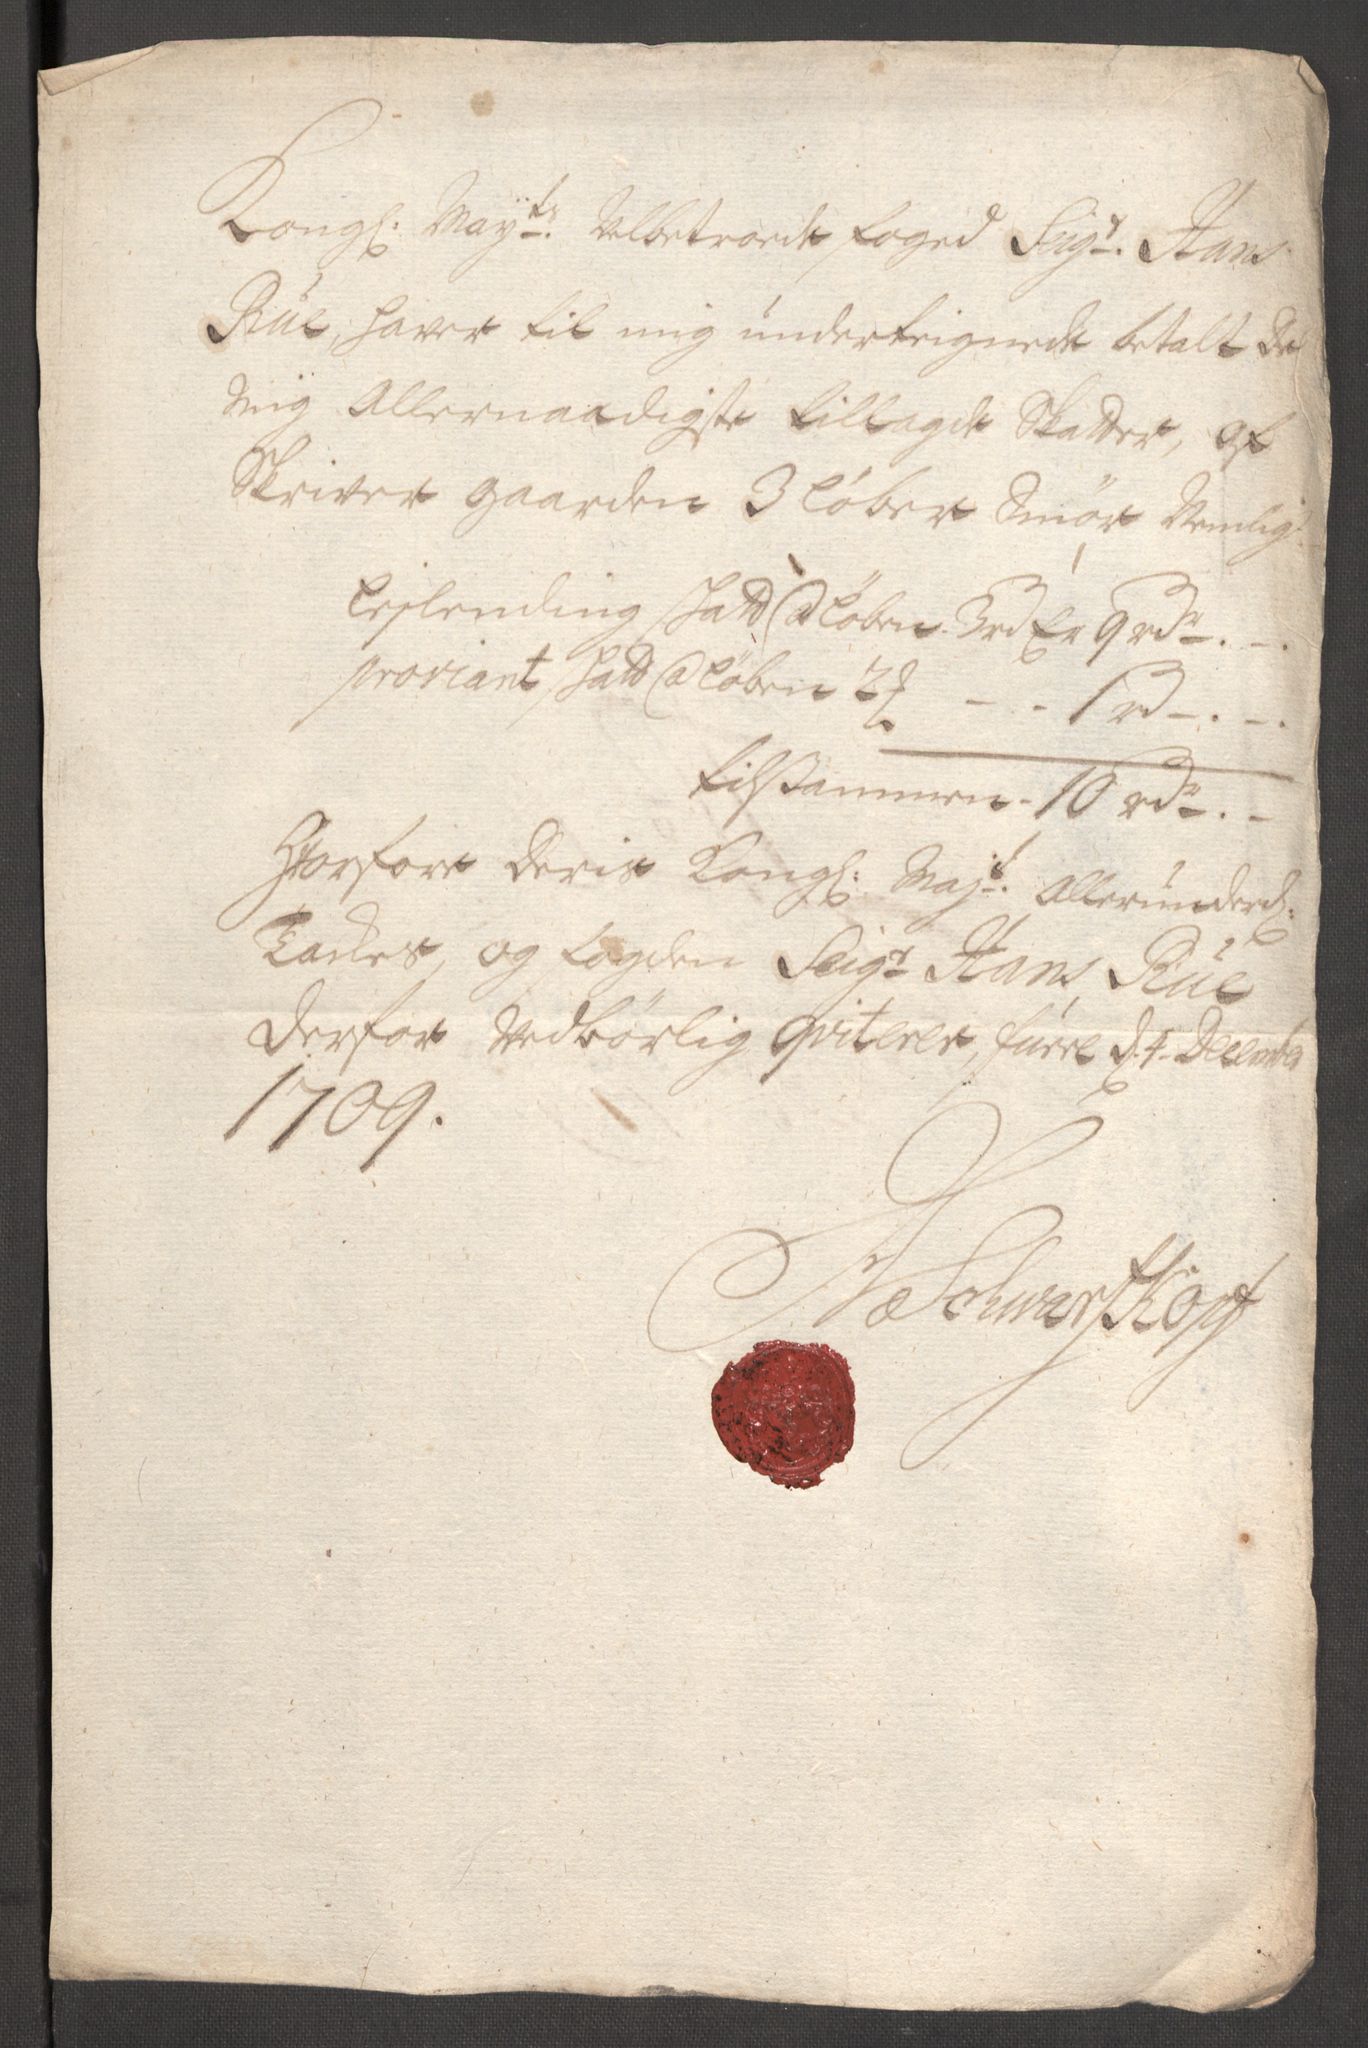 Kongl: Mayts: Velbetroede foged Seigr. Hans
Rüe, haver til mig underteignede betalt de
mig Allernaadigste tillagde Skatter, af
Skriver gaarden 3 Løber Smør Nemlig
Leylending Skatt @ Løben 3 rd Er 9 rdr - . - .
proviant Skatt @ Løben 2 - - 1 rd - . - .
tilsammen - 10 rdr . -
Hvorfore deris Kongl: Mayt: Alleründerd:
Tackes, og fogden Seigr Hans Rüe
derfor Vedbørlig qviteres, d. 4. December
1709.
Schwartzkopf